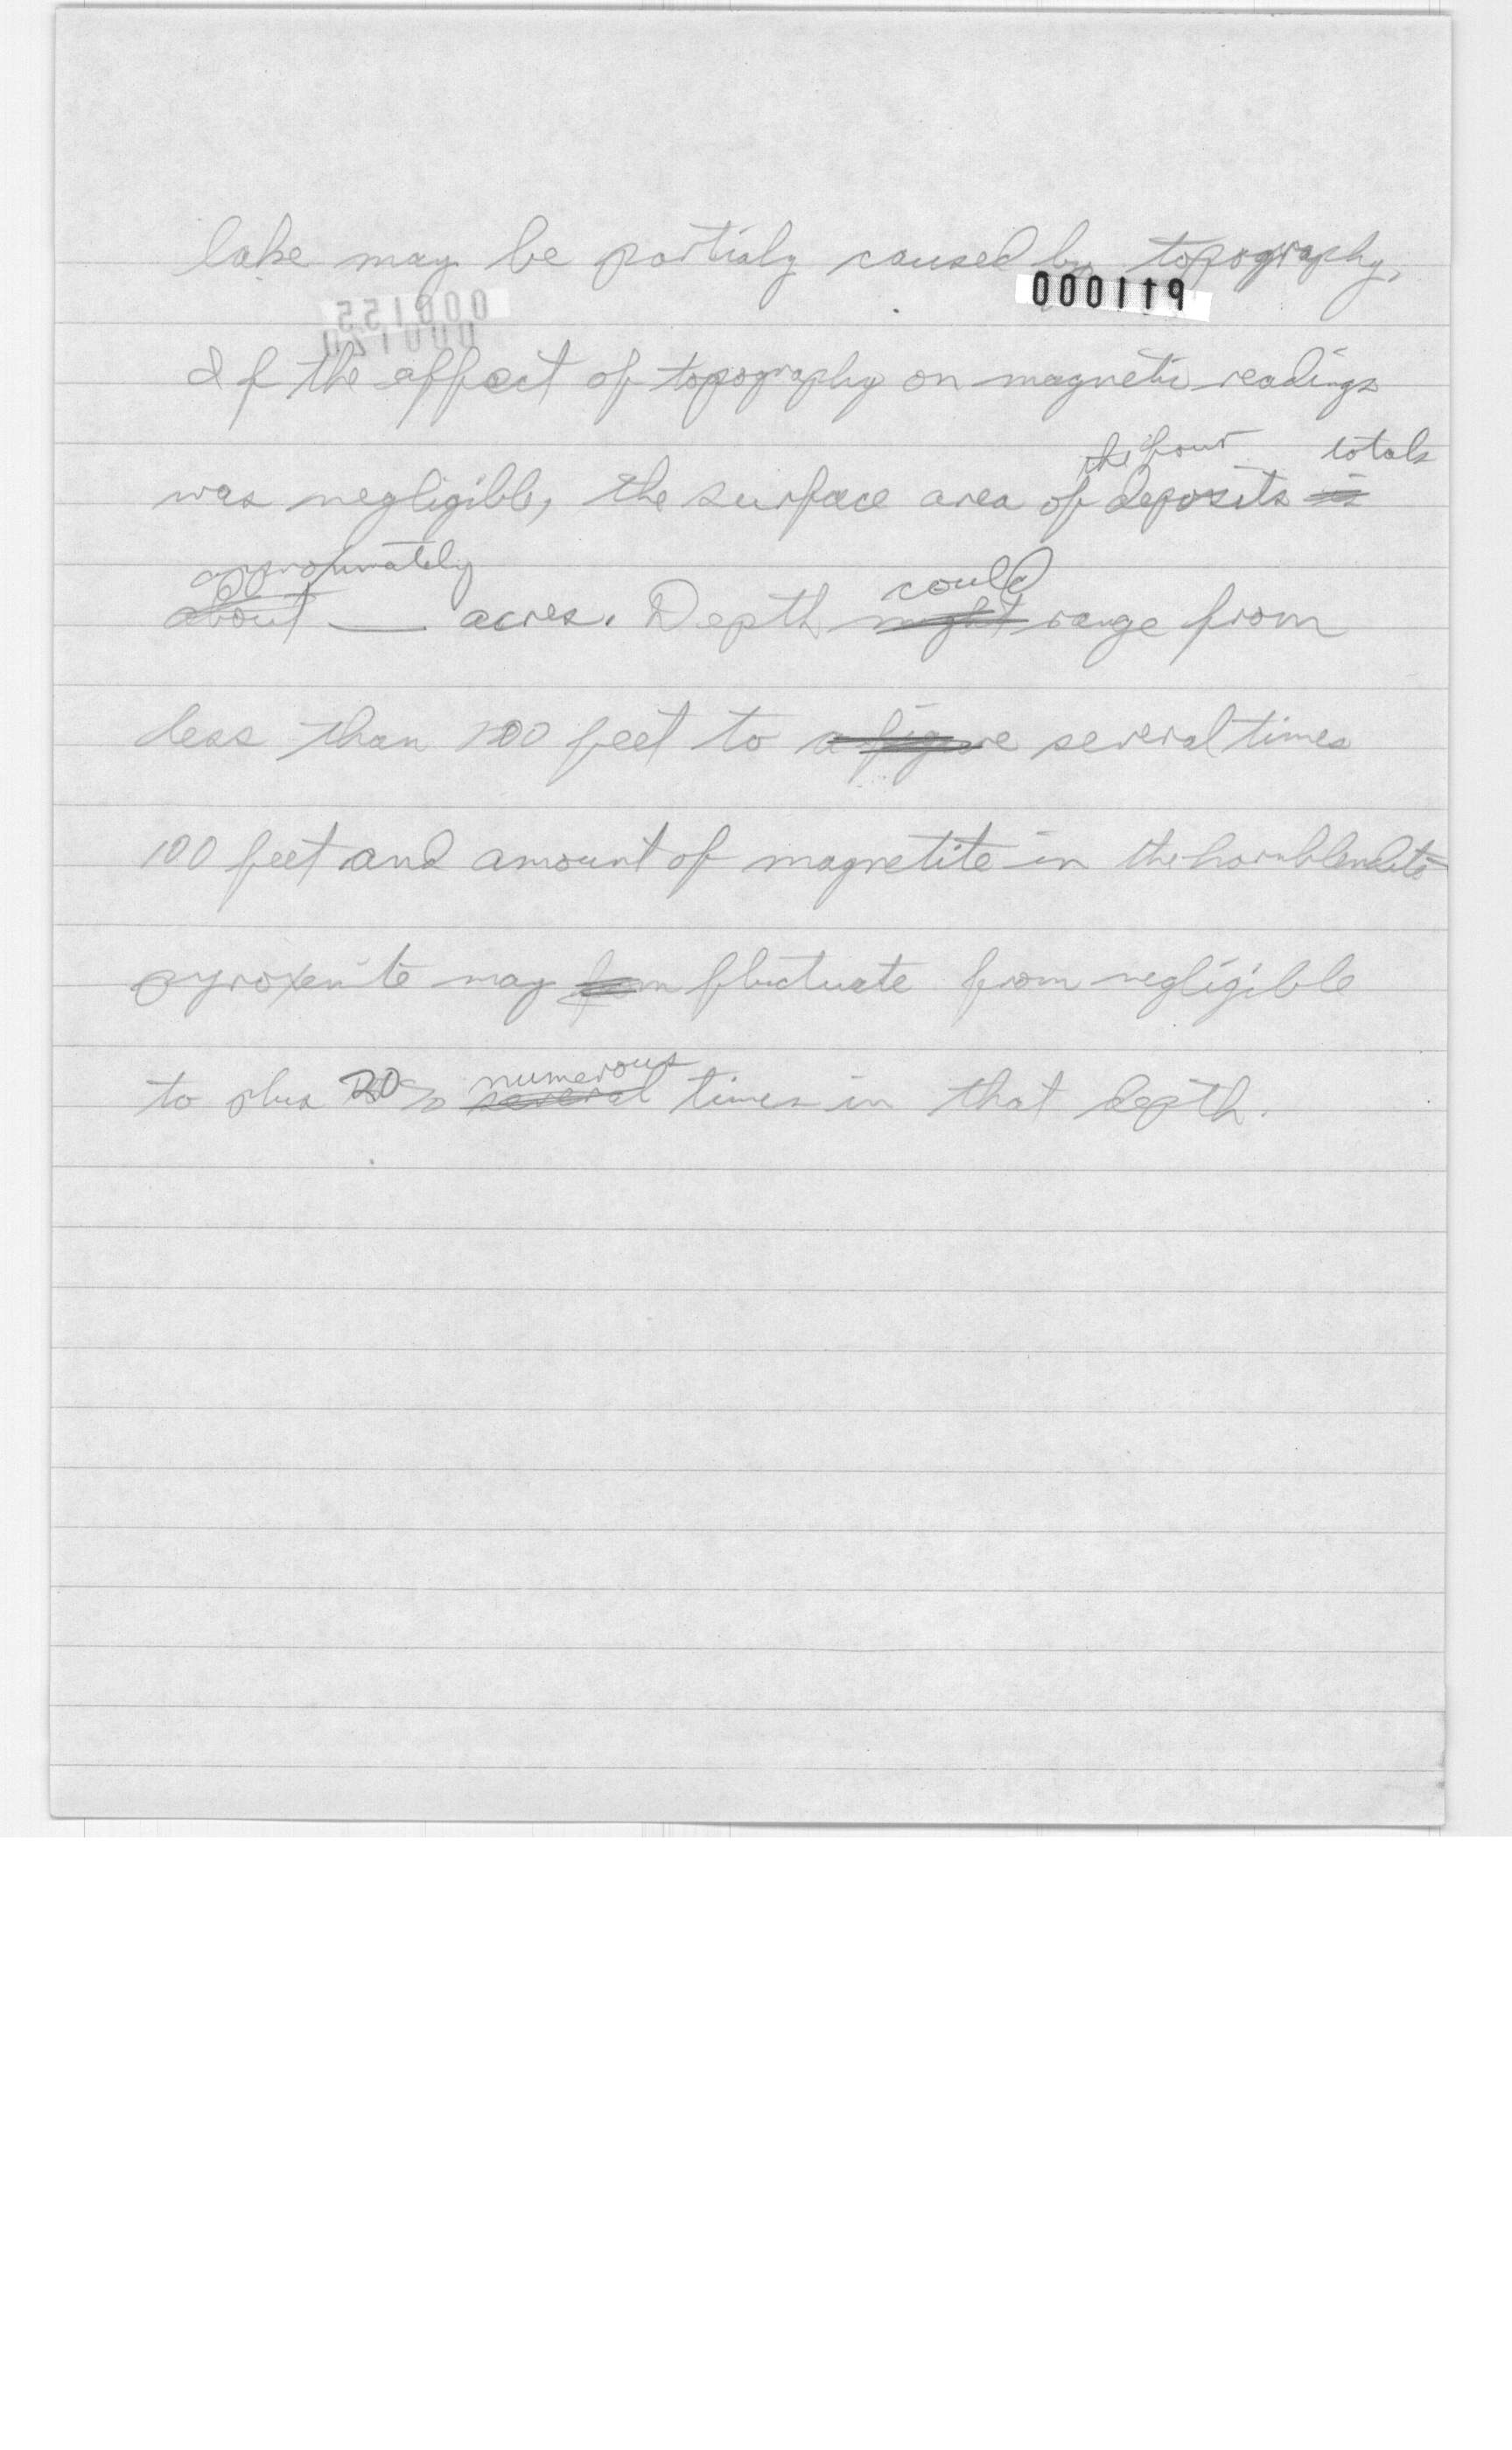 lake may be partialy caused by topography,
000119
If the affect of topography on magnetic readings
the four totals
was negligible, the surface area of deposits is
approximately could
about ___ acres. Depth might range from
less than 100 feet to a figure several times
100 feet and amount of magnetite in the hornblendite
pyroxenite may from fluctuate from negligible
numerous
to plus 20% several times in that depth.